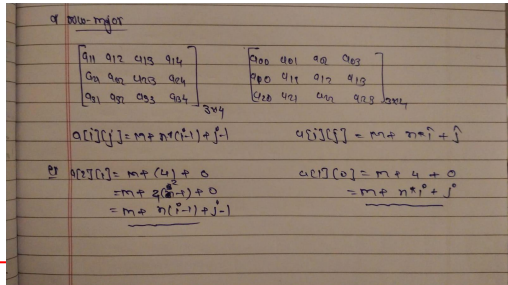 row-major
a11 a12 a13 a14
a21 a22 a23 a24
a31 a32 a33 a34
3x4
a00 a01 a02 a03
a10 a11 a12 a13
a20 a21 a22 a23
3x4
a[i][j] = m + n*(i-1) + j-1
a[i][j] = m + n*i + j
a[2][1] = m + (4) + 0
= m + 4(2-1) + 0
= m + n(i-1) + j-1
a[1][0] = m + 4 + 0
= m + n*i + j